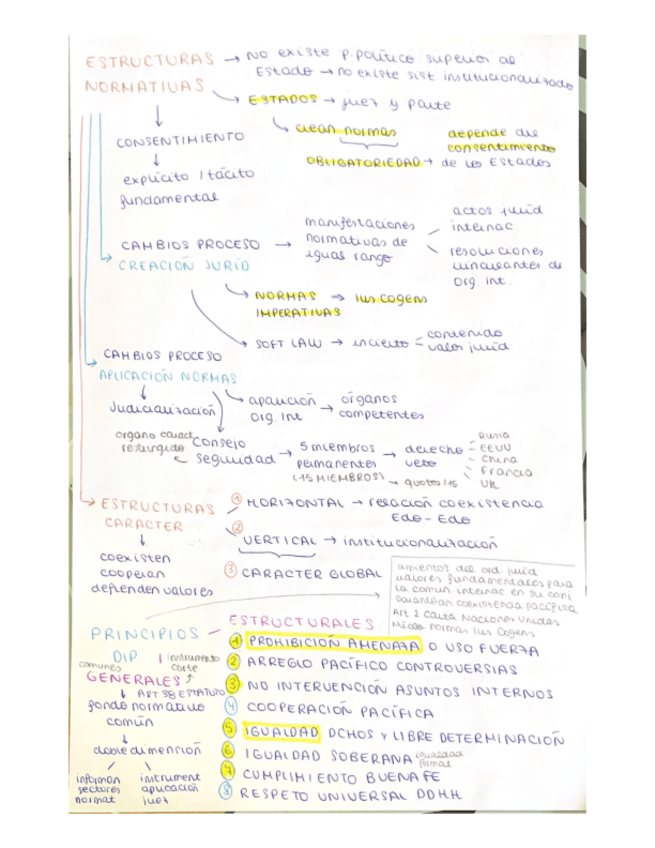 ESTRUCTURAS → NO existe p.político superior al
NORMATIVAS Estado → no existe sist. institucionalizado
ESTADOS → juez y parte
crean normas depende del
CONSENTIMIENTO consentimiento
OBLIGATORIEDAD → de los Estados
explícito / tácito
fundamental
actos juríd
manifestaciones internac
CAMBIOS PROCESO → normativas de
CREACIÓN JURÍD igual rango resoluciones
vinculantes de
org. int.
NORMAS → ius cogens
IMPERATIVAS
SOFT LAW → incierto = contenido
valor juríd
CAMBIOS PROCESO
APLICACIÓN NORMAS
Judicialización aparición → órganos
org. Int competentes
organo caract
restringido Consejo
Seguridad → 5 miembros → derecho
permanentes veto
(15 MIEMBROS) → quotos/15
Rusia
EEUU
China
Francia
UK
ESTRUCTURAS ① HORIZONTAL → relación coexistencia
CARACTER Edo - Edo
② VERTICAL → institucionalización
coexisten
cooperan ③ CARACTER GLOBAL
defienden valores
cimientos del ord. juríd
valores fundamentales para
la comun internac en su conj
Garantizan coexistencia pacífica
Art 2 Carta Naciones Unidas
normas Ius Cogens
PRINCIPIOS - ESTRUCTURALES
DIP
comunes instrumento
corte
GENERALES
↓ ART 38 ESTATUTO
fondo normativo
común
↓
doble dimensión
informan
sectores
normat
instrument
aplicación
juez
① PROHIBICIÓN AMENAZA O USO FUERZA
② ARREGLO PACÍFICO CONTROVERSIAS
③ NO INTERVENCIÓN ASUNTOS INTERNOS
④ COOPERACIÓN PACÍFICA
⑤ IGUALDAD DCHOS Y LIBRE DETERMINACIÓN
⑥ IGUALDAD SOBERANA igualdad
formal
⑦ CUMPLIMIENTO BUENA FE
⑧ RESPETO UNIVERSAL DDHH